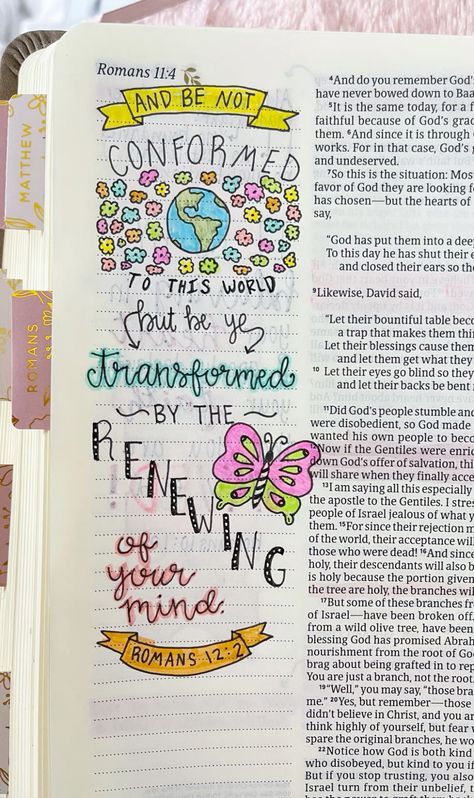 MATTHEW
ROMANS
Romans 11:4
AND BE NOT
CONFORMED
TO THIS WORLD
but be ye
transformed
BY THE
RENEWING
of
your
mind.
ROMANS 12:2
⁴And do you remember God's
have never bowed down to Baa
⁵It is the same today, for a f
faithful because of God's grac
them. ⁶And since it is through
works. For in that case, God's g
and undeserved.
⁷So this is the situation: Most
favor of God they are looking f
has chosen—but the hearts of
say,
"God has put them into a deep
To this day he has shut their e
and closed their ears so th
⁹Likewise, David said,
"Let their bountiful table becom
a trap that makes them thi
Let their blessings cause them
and let them get what they
¹⁰ Let their eyes go blind so they
and let their backs be bent
¹¹Did God's people stumble an
were disobedient, so God made
wanted his own people to beco
¹²Now if the Gentiles were enric
down God's offer of salvation, thi
will share when they finally acce
¹³I am saying all this especially
the apostle to the Gentiles. I stres
people of Israel jealous of what y
them. ¹⁵For since their rejection m
of the world, their acceptance will
those who were dead! ¹⁶And since
holy, their descendants will also b
is holy because the portion given
the tree are holy, the branches will
¹⁷But some of these branches fr
of Israel—have been broken off.
from a wild olive tree, have been
blessing God has promised Abrah
nourishment from the root of God
brag about being grafted in to rep
You are just a branch, not the root.
¹⁹"Well," you may say, "those bra
me." ²⁰Yes, but remember—those
didn't believe in Christ, and you ar
think highly of yourself, but fear w
spare the original branches, he wo
²²Notice how God is both kind
who disobeyed, but kind to you if
But if you stop trusting, you also
Israel turn from their unbelief,